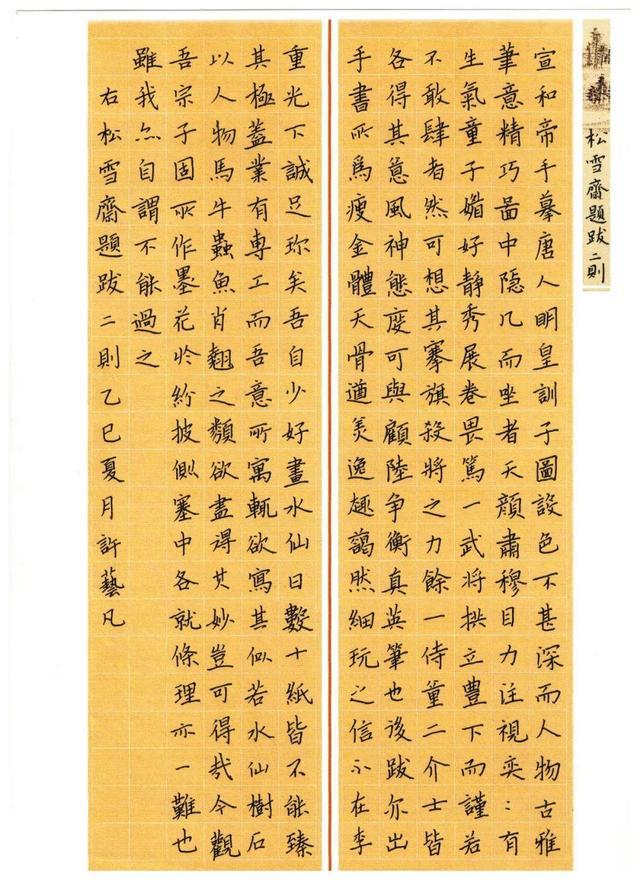 松雪齋題跋二則
宣和帝手摹唐人明皇訓子圖設色不甚深而人物古雅
筆意精巧圖中隱几而坐者天顏肅穆目力注視奕:有
生氣童子媚好靜秀展卷畏篤一武將拱立豊下而謹若
不敢肆者然可想其搴旗殺將之力餘一侍童二介士皆
各得其意風神態度可與顧陸争衡真英筆也後跋尓出
手書所爲瘦金體天骨遒美逸趣藹然細玩之信不在李
重光下誠足珎矣吾自少好畫水仙日數十紙皆不能臻
其極蓋業有專工而吾意所寓輒欲寫其似若水仙樹石
以人物馬牛蟲魚肖翾之類欲盡得其妙豈可得哉今觀
吾宗子固所作墨花於紛披側塞中各就條理亦一難也
雖我亦自謂不能過之
右松雪齋題跋二則乙巳夏月許藝凡